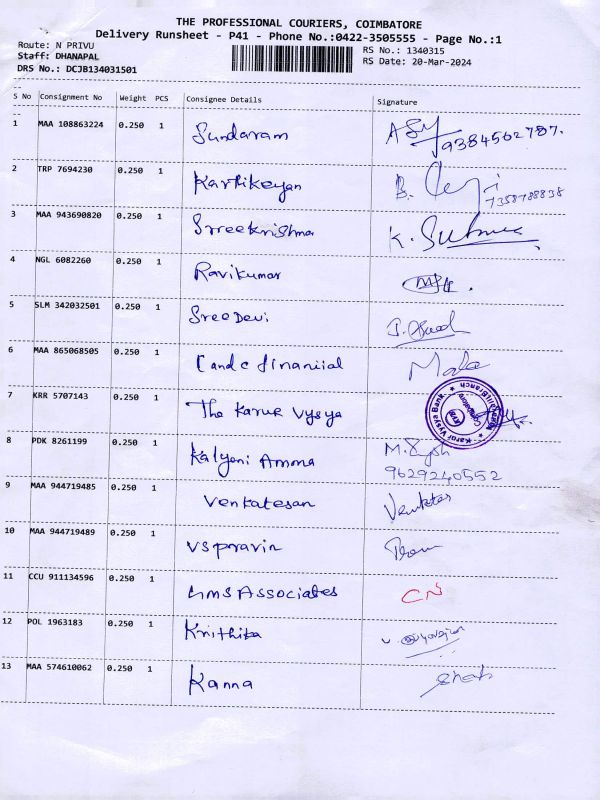 THE PROFESSIONAL COURIERS, COIMBATORE
Delivery Runsheet - P41 - Phone No.:0422-3505555 - Page No.:1
Route: N PRIVU RS No.: 1340315
Staff: DHANAPAL RS Date: 20-Mar-2024
DRS No.: DCJB134031501
S No Consignment No Weight PCS Consignee Details Signature
1 MAA 108863224 0.250 1 Sundaram 9384562787.
2 TRP 7694230 0.250 1 Karthikeyan B. 7358788838
3 MAA 943690820 0.250 1 Srreekrishna K.
4 NGL 6082260 0.250 1 Ravikumar
5 SLM 342032501 0.250 1 Sree Devi
6 MAA 865068505 0.250 1 C and C finaniial Mala
7 KRR 5707143 0.250 1 The Karur Vysya Karur Vysya Bank
8 PDK 8261199 0.250 1 Kalyani Amma M. 9629240552
9 MAA 944719485 0.250 1 Venkatesan
10 MAA 944719489 0.250 1 VS pravin
11 CCU 911134596 0.250 1 HMS Associates CN
12 POL 1963183 0.250 1 Krithika
13 MAA 574610062 0.250 1 Kanna